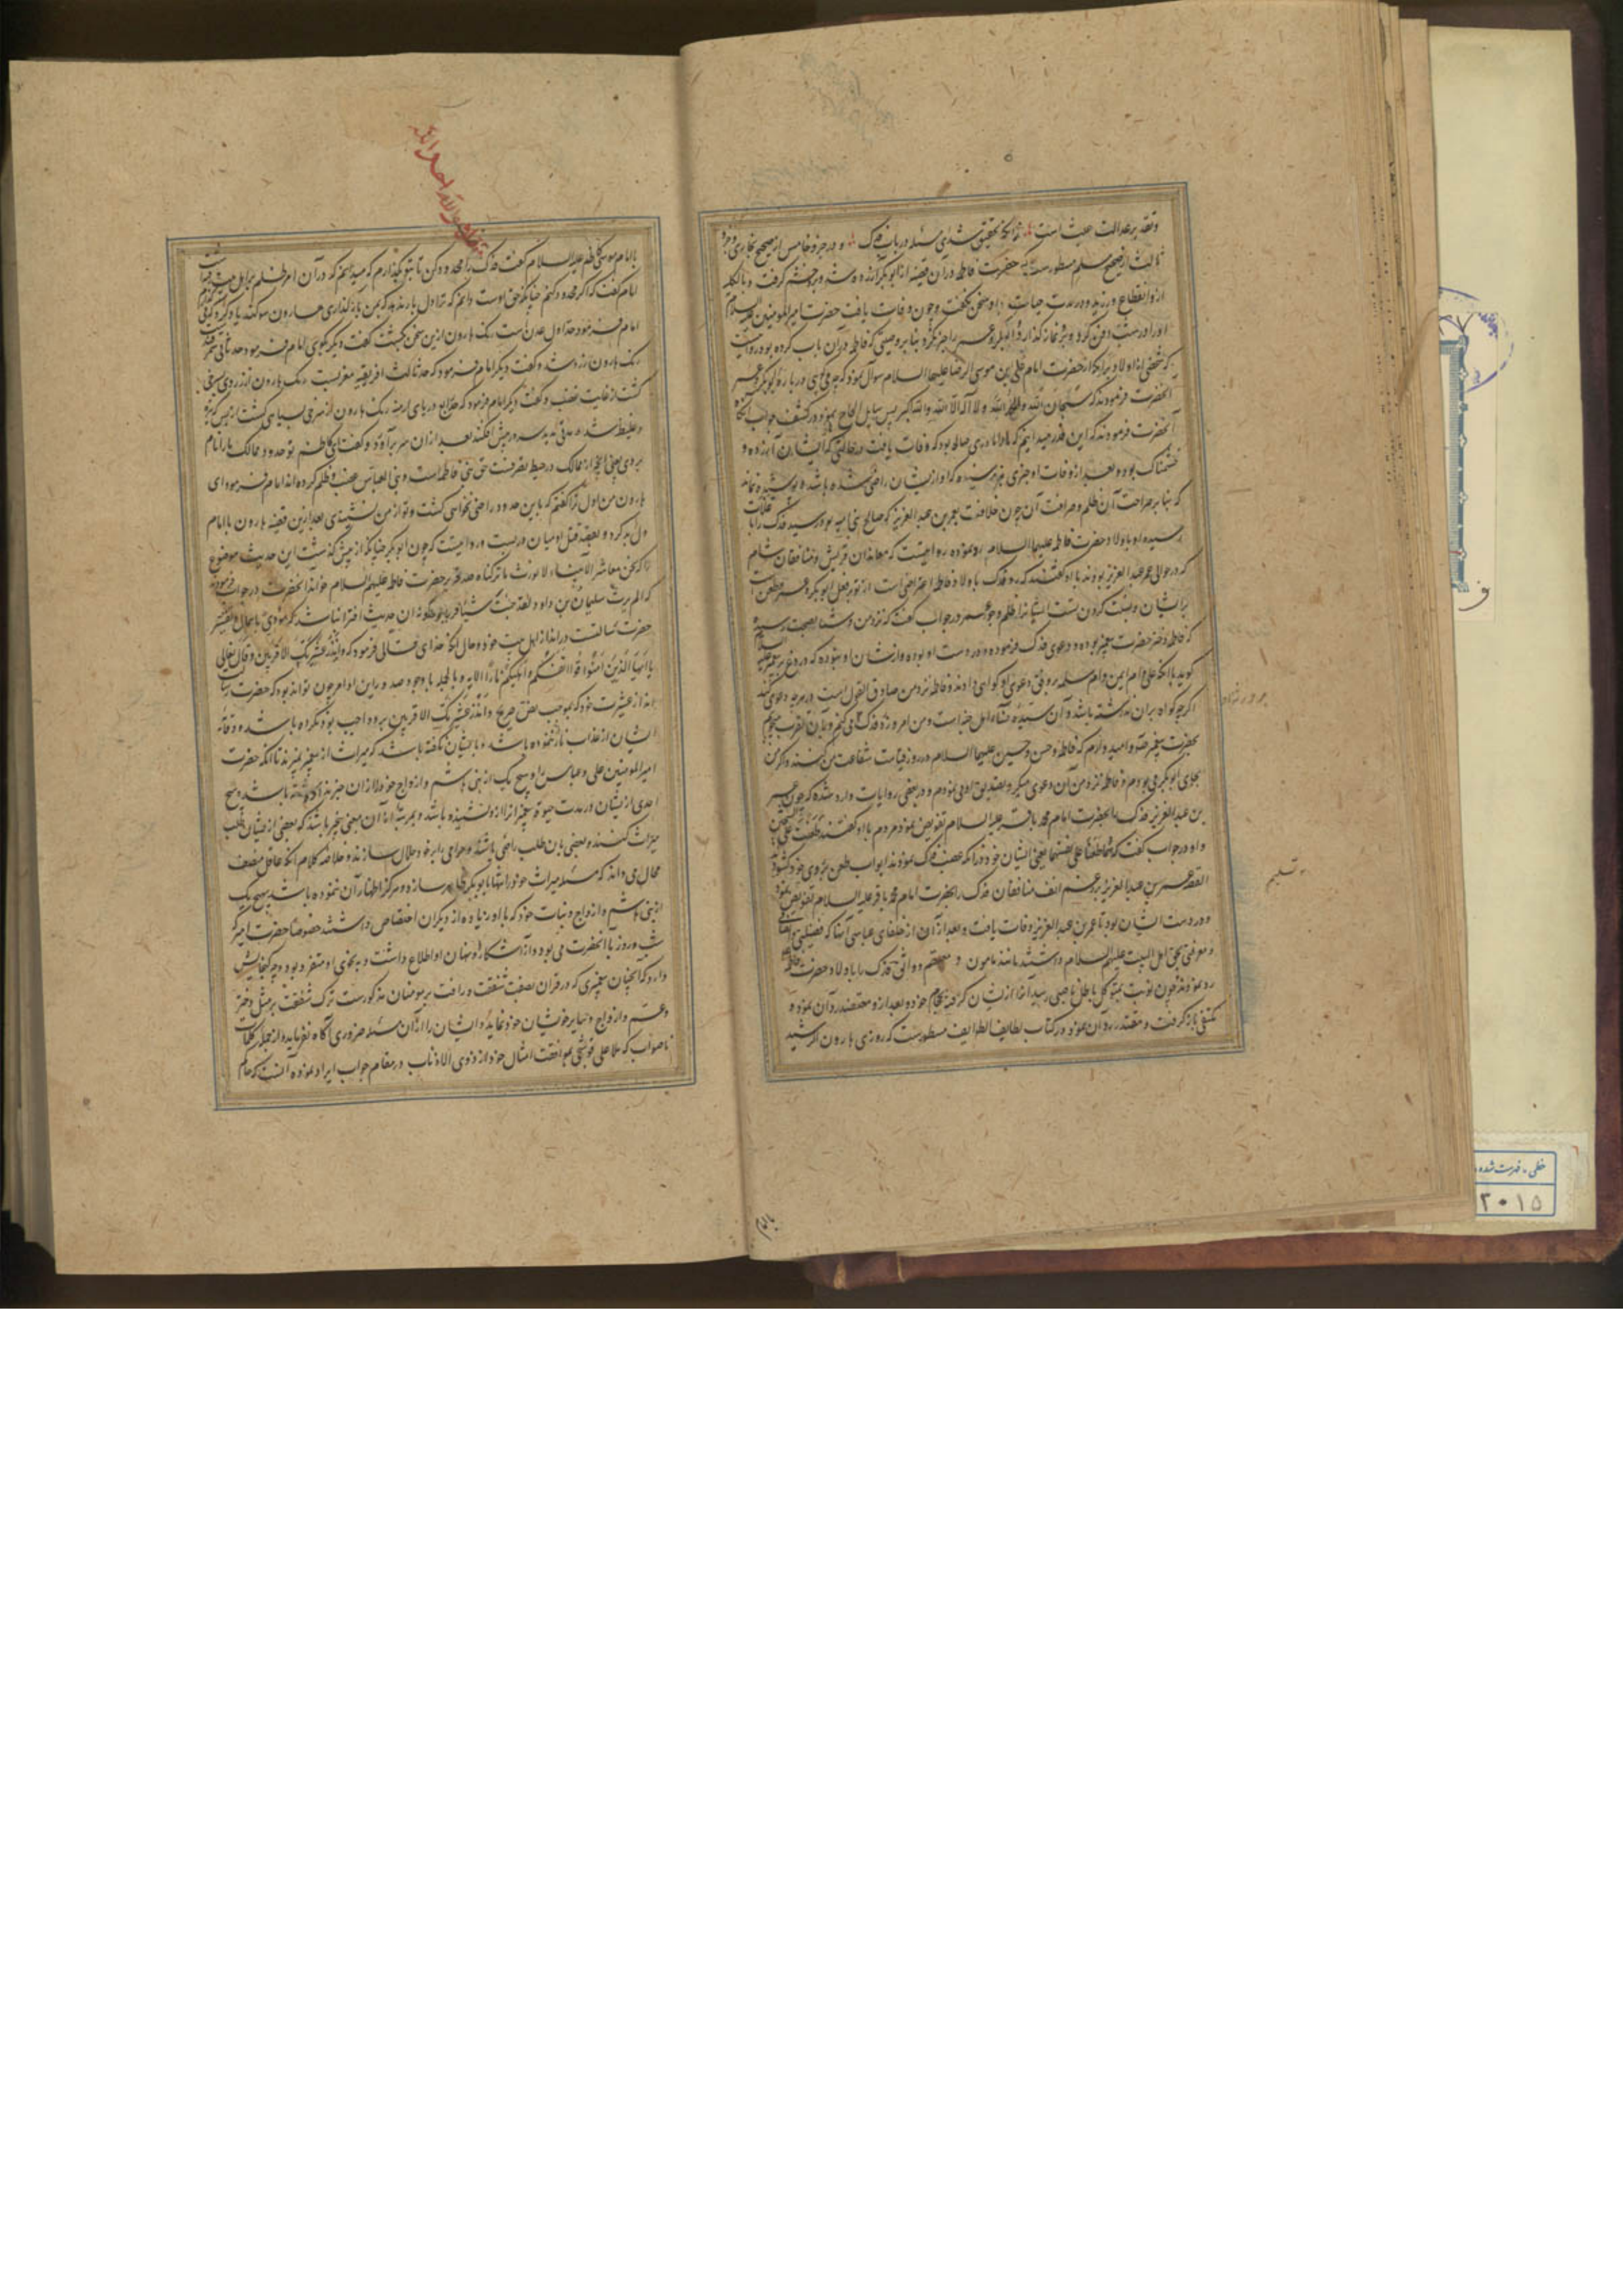 وتقدیر عدالت عبث است
ثالث از صحیح مسلم مسطور است که حضرت فاطمه در آن قضیه از ابوبکر آزرده شد و بر وی خشم گرفت و بالکلیه
ازو انقطاع ورزید و در مدت حیات با او سخن نگفت و چون وفات یافت حضرت امیرالمؤمنین علیه السلام
او را در شب دفن کرد و برو نماز گذارد و ابوبکر و عمر را خبر نکرد بنابر وصیتی که فاطمه در آن باب کرده بود و روایت
که شخصی از اولاد برامکه از حضرت امام علی بن موسی الرضا علیهما السلام سؤال نمود که چه می گویی در باره ابوبکر و عمر
آنحضرت فرمودند که سبحان الله والحمد لله ولا اله الا الله والله اکبر پس سایل الحاح نمود در کشف جواب
آنحضرت فرمودند که این قدر میدانیم که ما را مادری صالحه بود که وفات یافت در حالتی که از ایشان آزرده و
خشمناک بود و بعد از وفات او خبری بما نرسیده که او از ایشان راضی شده باشد و پوشیده نماند
که بنابر صراحت آن ظلم و صرافت آن چون خلافت بعمر بن عبد العزیز که صالح بنی امیه بود رسید فدک را با
اولاد حضرت فاطمه علیها السلام رد نموده روایتست که معاندان قریش و منافقان شام
که در حوالی عمر عبد العزیز بودند با او گفتند که رد فدک با اولاد فاطمه اعتراضی است از تو بر فعل ابوبکر و عمر و طعن است
بر ایشان و نسبت کردن است ایشان را بظلم و جور عمر در جواب گفت که نزد من و شما بصحت رسیده
که فاطمه دختر حضرت پیغمبر بوده و دعوی فدک فرموده و در دست او بوده و از شان او نبوده که دروغ بر پیغمبر
گوید با آنکه علی و ام ایمن و ام سلمه بر وفق دعوی او گواهی دادند و فاطمه نزد من صادق القول است در هرچه دعوی کند
اگرچه گواه بر آن نداشته باشد و آن سیده نساء اهل جنه است و من امروز رد فدک می کنم و بآن تقرب میجویم
بحضرت پیغمبر و امید دارم که فاطمه و حسن و حسین علیهما السلام در روز قیامت شفاعت من کنند و اگر من
بجای ابوبکر می بودم و فاطمه نزد من آن دعوی میکرد تصدیق او می نمودم و در بعضی روایات وارد شده که چون عمر
بن عبد العزیز فدک را بحضرت امام محمد باقر علیه السلام تفویض نمود مردم با او گفتند طعنت علی الشیخین
و او در جواب گفت که هما طعنا علی انفسهما یعنی ایشان خود در آنکه غصب فدک نمودند ابواب طعن بر روی خود گشودند
القصه عمر بن عبد العزیز بر رغم انف منافقان فدک را بحضرت امام محمد باقر علیه السلام تفویض نمود
و در دست ایشان بود تا عمر بن عبد العزیز وفات یافت و بعد از آن از خلفای عباسی آنها که فضیلتی و انصافی
و معرفتی بحق اهل البیت علیهم السلام داشتند مانند مامون و معتصم و واثق فدک را با اولاد حضرت فاطمه
رد نمودند و چون نوبت بمتوکل باطل ناصبی رسید آنرا از ایشان گرفته بحجام خود داد و بعد از و معتضد رد آن نمود و
مکتفی باز گرفت و مقتدر رد آن نمود و در کتاب لطایف الطوایف مسطور است که روزی هارون الرشید
باامام
تسلیم
با امام موسی کاظم علیه السلام گفت فدک را محدود کن تا بتو بگذارم که میدانم که در آن امر ظلم بر اهل بیت
امام گفت که اگر محدود کنم چنانکه حق اوست دانم که ترا دل بار ندهد که بمن باز گذاری هارون سوگند یاد کرد
امام فرمود حد اول عدن است رنگ هارون ازین سخن بگشت گفت دیگر بگوی امام فرمود حد ثانی سمرقند
رنگ هارون زرد شد و گفت دیگر امام فرمود که حد ثالث افریقیه مغربست رنگ هارون از زردی بسرخی
گشت از غایت غضب و گفت دیگر امام فرمود که حد رابع دریای ارمنیه رنگ هارون از سرخی بسیاهی گشت
و غلیظ شد و مدتی مدید سر در پیش افکند بعد از آن سر برآورد و گفت ای کاظم تو حدود ممالک ما را نام
بردی یعنی آنچه از ممالک در حیطه تصرفست حق بنی فاطمه است و بنی العباس غصب و ظلم کرده اند امام فرمود ای
هارون من اول ترا گفتم که باین حدود راضی نخواهی گشت و تو از من نشنیدی بعد ازین قضیه هارون با امام
دل بد کرد و بعقد قتل او میان دربست و روایتست که چون ابوبکر چنانکه از پیش گذشت این حدیث موضوع
را که نحن معاشر الانبیاء لا نورث ما ترکناه صدقة بر حضرت فاطمه علیها السلام خواند آنحضرت در جواب فرمودند
که الم یرث سلیمان بن داود لقد جئت شیئا فریا و چگونه آن حدیث افترا نباشد که مؤدی باهمال و تقصیر
حضرت رسالتست در انذار اهل بیت خود و حال آنکه خدای تعالی فرموده که وانذر عشیرتک الاقربین وقال تعالی
یا ایها الذین آمنوا قوا انفسکم واهلیکم نارا الایه و بالجمله با وجود صدور این اوامر چون تواند بود که حضرت
انذار عشیرت خود که بموجب نص صریح وانذر عشیرتک الاقربین برو واجب بود نکرده باشد و وقایه
ایشان از عذاب نار ننموده باشد و بایشان نگفته باشد که میراث از پیغمبر نمی برند تا آنکه حضرت
امیر المؤمنین علی و عباس و هیچ یک از بنی هاشم و ازواج خود را از آن خبر نداده باشد و هیچ
احدی از ایشان در مدت حیوة پیغمبر آنرا ازو نشنیده باشد و بمرتبه از آن معنی بیخبر باشند که بعضی از ایشان طلب
میراث کنند و بعضی بآن طلب راضی باشند و حرامی را بر خود حلال سازند و خلاصه کلام آنکه عاقل منصف
محال می داند که مسئله میراث خود را تنها با ابوبکر ظاهر سازد و هرگز اظهار آن ننموده باشد بهیچ یک
از بنی هاشم و ازواج و بنات خود که با او زیاده از دیگران اختصاص داشتند خصوصا حضرت امیر که
شب و روز با آنحضرت می بود و از آشکار و نهان او اطلاع داشت و به نجوی او متفرد بود و چه گنجایش
دارد که آنچنان پیغمبری که در قرآن بصفت شفقت و رافت بر مؤمنان مذکورست ترک شفقت بر مثل دختر
و عم و ازواج و سایر خویشان خود نماید و ایشان را از آن مسئله ضروری آگاه نفرماید و از جمله کلمات
ناصواب که ملا علی قوشجی بموافقت امثال خود از ذوی الاذناب در مقام جواب ایراد نموده آنست که حاکم
خطی - فهرست شده
۲۰۱۵